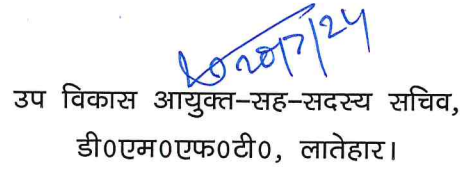 20/7/24
उप विकास आयुक्त-सह-सदस्य सचिव,
डी0एम0एफ0टी0, लातेहार।